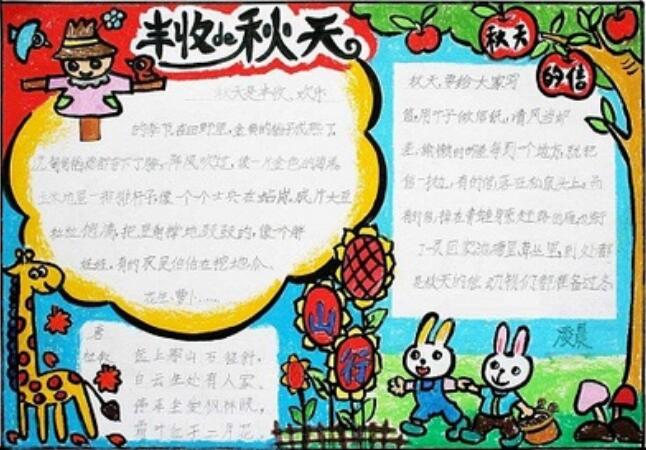 丰收de秋天
秋天是丰收、欢乐
的季节,在田野里,金黄的稻子成熟了,
一阵风吹过,像一片金色的海洋。
玉米地里一排排杆子,像一个个士兵在站岗,成片大豆
粒粒饱满,把豆荚撑地鼓鼓的,像个胖
娃娃,有的农民伯伯在挖地瓜、
花生、萝卜……
山行
唐
杜牧
远上寒山石径斜,
白云生处有人家。
停车坐爱枫林晚,
霜叶红于二月花。
秋天的信
秋天,要给大家写
信,用叶子做信纸,请风当邮
差,偷懒的邮差每到一个地方,就把
信一抛,有的信落在松鼠头上,而
有的
了
回家,池塘里,草丛里,到处都
是秋天的信,动物们都准备过冬
凌晨